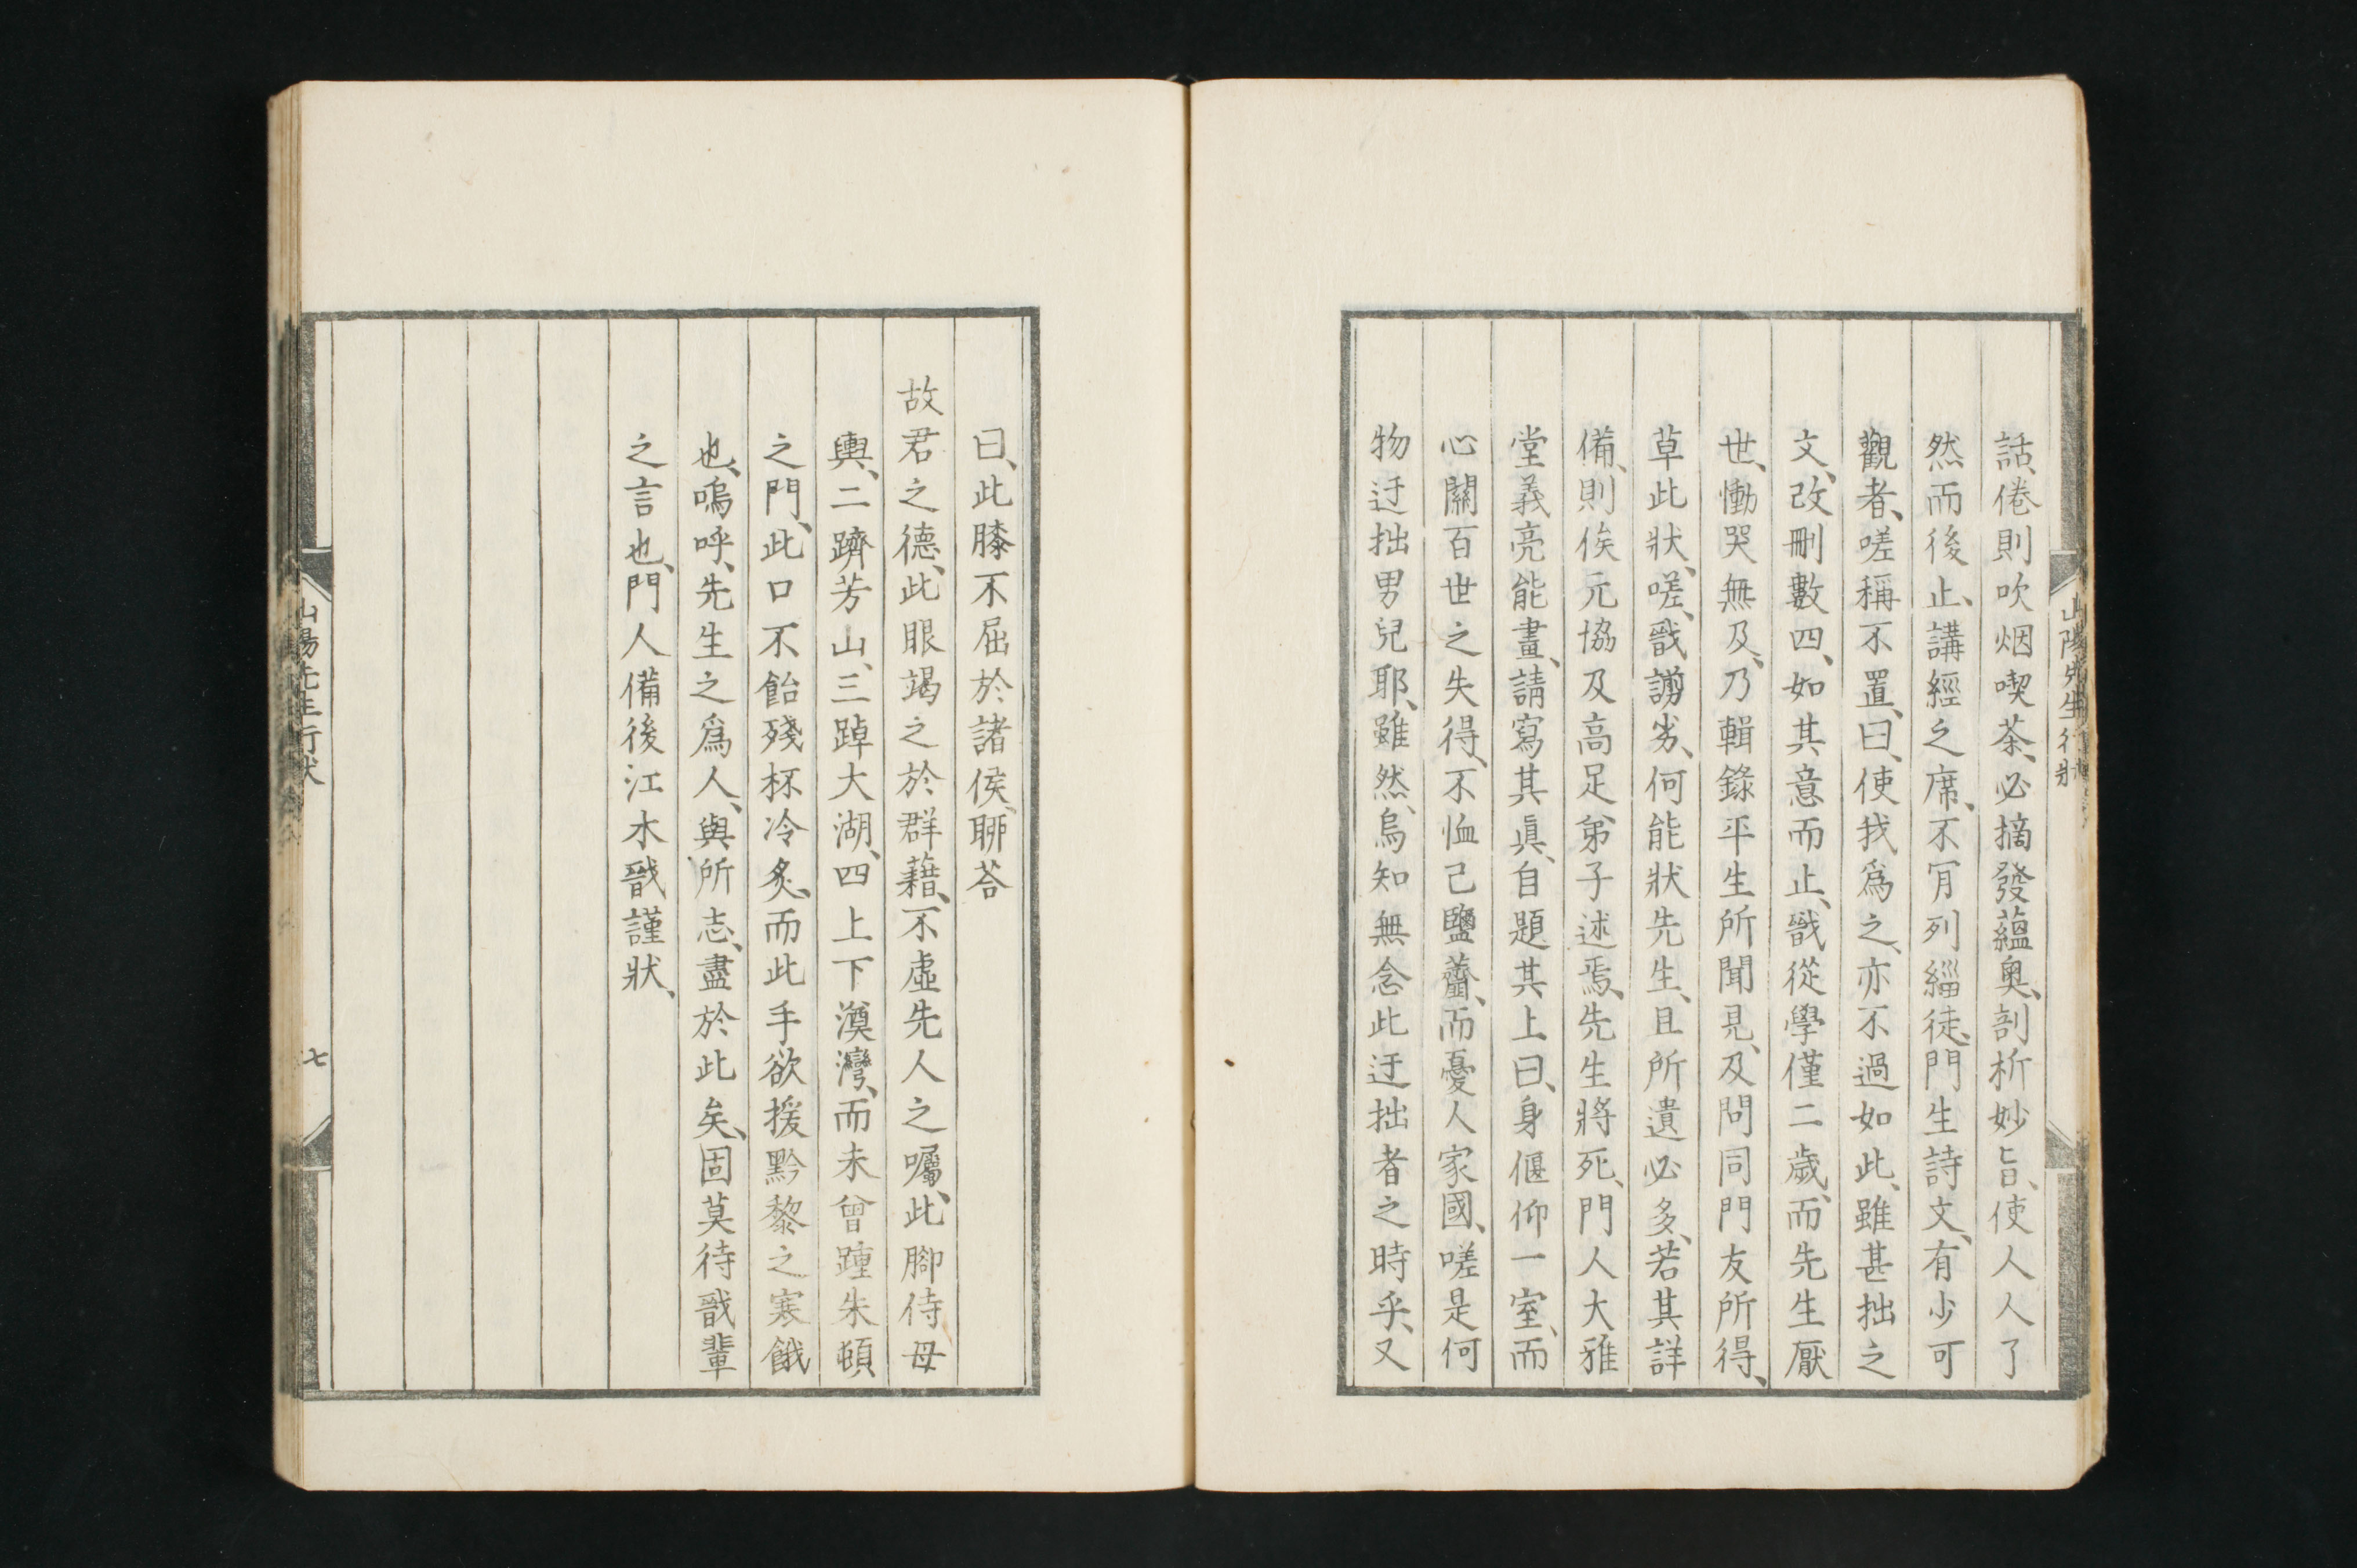 話、倦則吹烟喫茶、必摘發蘊奥、剖析妙旨、使人人了
然而後止、講經之席、不肎列緇徒、門生詩文、有少可
觀者、嗟稱不置、曰、使我爲之、亦不過如此、雖甚拙之
文、改刪數四、如其意而止、戩從學僅二歳、而先生厭
世、慟哭無及、乃輯錄平生所聞見、及問同門友所得、
草此狀、嗟、戩謭劣、何能狀先生、且所遺必多、若其詳
備、則俟元協及高足弟子述焉、先生將死、門人大雅
堂義亮能畫、請寫其眞、自題其上曰、身偃仰一室、而
心關百世之失得、不恤己鹽虀、而憂人家國、嗟是何
物迂拙男兒耶、雖然、烏知無念此迂拙者之時乎、又
山陽先生行狀
曰、此膝不屈於諸侯、聊荅
故君之德、此眼竭之於群藉、不虛先人之囑、此脚侍母
輿、二躋芳山、三踔大湖、四上下澱灣、而未曾踵朱頓
之門、此口不飴殘杯冷炙、而此手欲援黔黎之寒餓
也、嗚呼、先生之爲人、與所志、盡於此矣、固莫待戩輩
之言也、門人備後江木戩謹狀、
山陽先生行狀
七